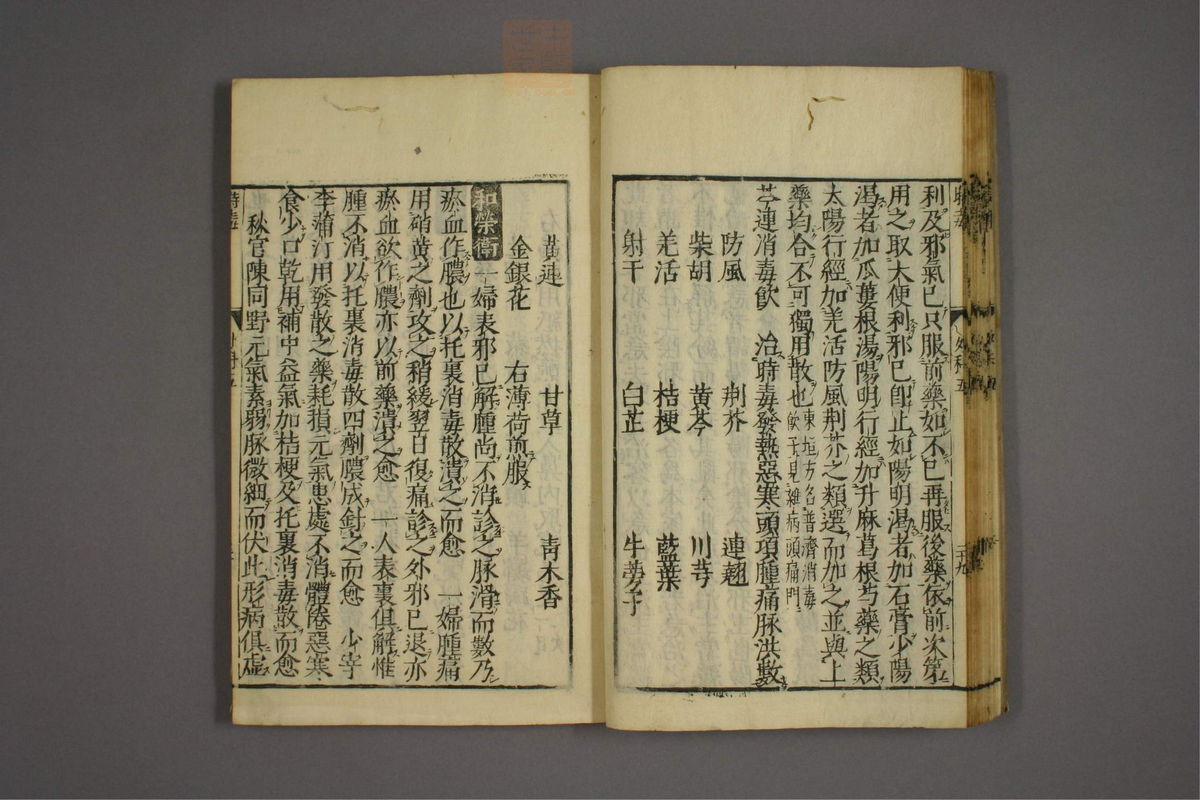 利及邪氣已只服前藥如不已再服後藥依前次第
用之取大便利邪已卽止如陽明渴者加石膏少陽
渴者加瓜蔞根湯陽明行經加升麻葛根芍藥之類
太陽行經加羌活防風荆芥之類選而加之並與上
藥均合不可獨用散也東垣方名普濟消毒飲子見雜病頭痛門
芩連消毒飲　治時毒發熱惡寒頭項腫痛脉洪數
防風　荆芥　連翹
柴胡　黄芩　川芎
羌活　桔梗　藍葉
射干　白芷　牛蒡子
黄連　甘草　青木香
金銀花　右薄荷煎服
和榮衛　一婦表邪已解腫尚不消診之脉滑而數乃
瘀血作膿也以托裏消毒散潰之而愈　一婦腫痛
用硝黄之劑攻之稍緩翌日復痛診之外邪已退亦
瘀血欲作膿亦以前藥潰之愈　一人表裏俱解惟
腫不消以托裏消毒散四劑膿成針之而愈　少宰
李蒲汀用發散之藥耗損元氣患處不消體倦惡寒
食少口乾用補中益氣加桔梗及托裏消毒散而愈
秋官陳同野元氣素弱脉微細而伏此形病俱虛